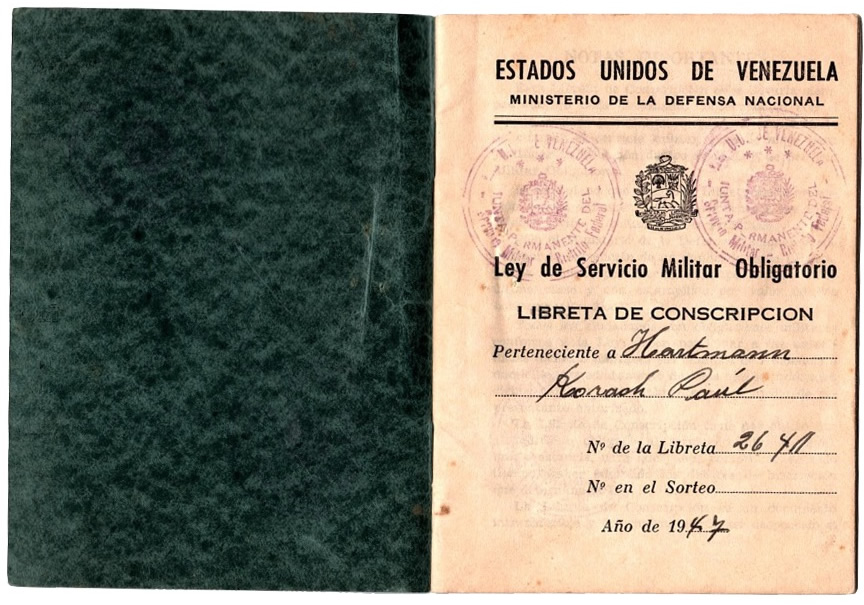 ESTADOS UNIDOS DE VENEZUELA
MINISTERIO DE LA DEFENSA NACIONAL
DE VENEZUELA
JUNTA PERMANENTE DEL
Servicio Militar - Distrito Federal
E.E. U.U. DE VENEZUELA
JUNTA PERMANENTE DEL
Servicio Militar - Distrito Federal
Ley de Servicio Militar Obligatorio
LIBRETA DE CONSCRIPCION
Perteneciente a Hartmann
Korach Paúl
Nº de la Libreta 26
Nº en el Sorteo
Año de 1947